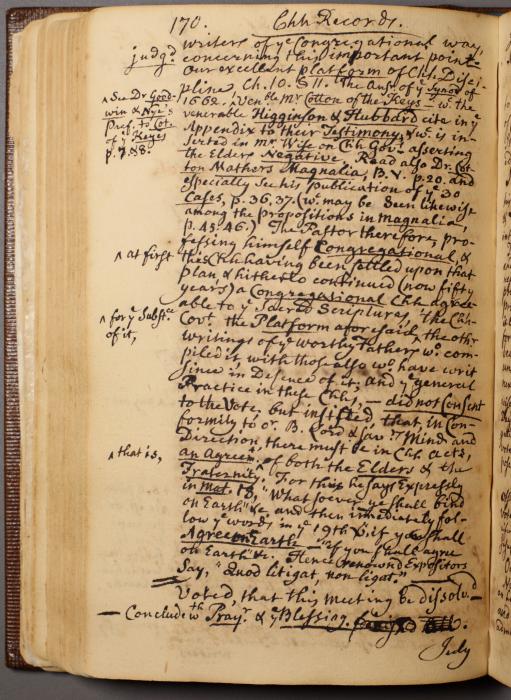 170.
Chh Records.
writers of yᵉ Congregational way,
judg'd concerning this important point
Our excellent platform of Chh Disci-
pline, Ch. 10. § 11. The Ansʳ of yᵉ Synod of
^ See Dr Good-
win & Nye's
Pref. to Cot.
of yᵉ Keyes
p. 7, & 8.
1662. Venᵇˡᵉ Mʳ Cotton of the Keys — wᶜ the
venerable Higginson & Hubbard cite in yᵉ
Appendix to their Testimony, & wᶜ is in-
serted in Mʳ Wise on Chh Govᵗ asserting
the Elders Negative. Read also Dr. Cot-
ton Mathers Magnalia, B. V. p. 20. and
especially see his publication of yᵉ 30
Cases, p. 36, 37. (wᶜ may be seen likewise
among the propositions in Magnalia,
p. 45. 46.) The Pastor therefore, pro-
fessing himself Congregational, &
^ at first
this Chh having been settled upon that
plan, & hitherto continued (now fifty
years) a Congregational Chh agree-
able to yᵉ Sacred Scriptures, the Chh-
^ for yᵉ Substᶜᵉ
of it,
Covt. the Platform aforesaid, the othʳ
writings of yᵉ worthy Fathers wᵒ com-
piled it, with those also wᵒ have writ
since in Defence of it, and yᵉ general
Practice in these Chhs, — did not Consent
to the Vote, but insisted, that, in Con-
formity to oʳ B. Lord & Savʳˢ Mind and
Direction, there must be in Chh acts,
^ that is,
an Agreemᵗ ^ of both the Elders & the
Fraternity. For this he says Expressly
in Mat. 18, "Whatsoever ye shall bind
on Earth" &c and then immediately fol-
low yᵉ words in yᵉ 19th v. if you shall
Agree on Earth — "if you shall agree
on Earth" &c. Hence renownd Expositors
Say, "Quod litigat, non ligat"
Voted, that this meeting be dissolv'd —
— Conclude wᵗʰ Prayʳ & yᵉ Blessing.
July